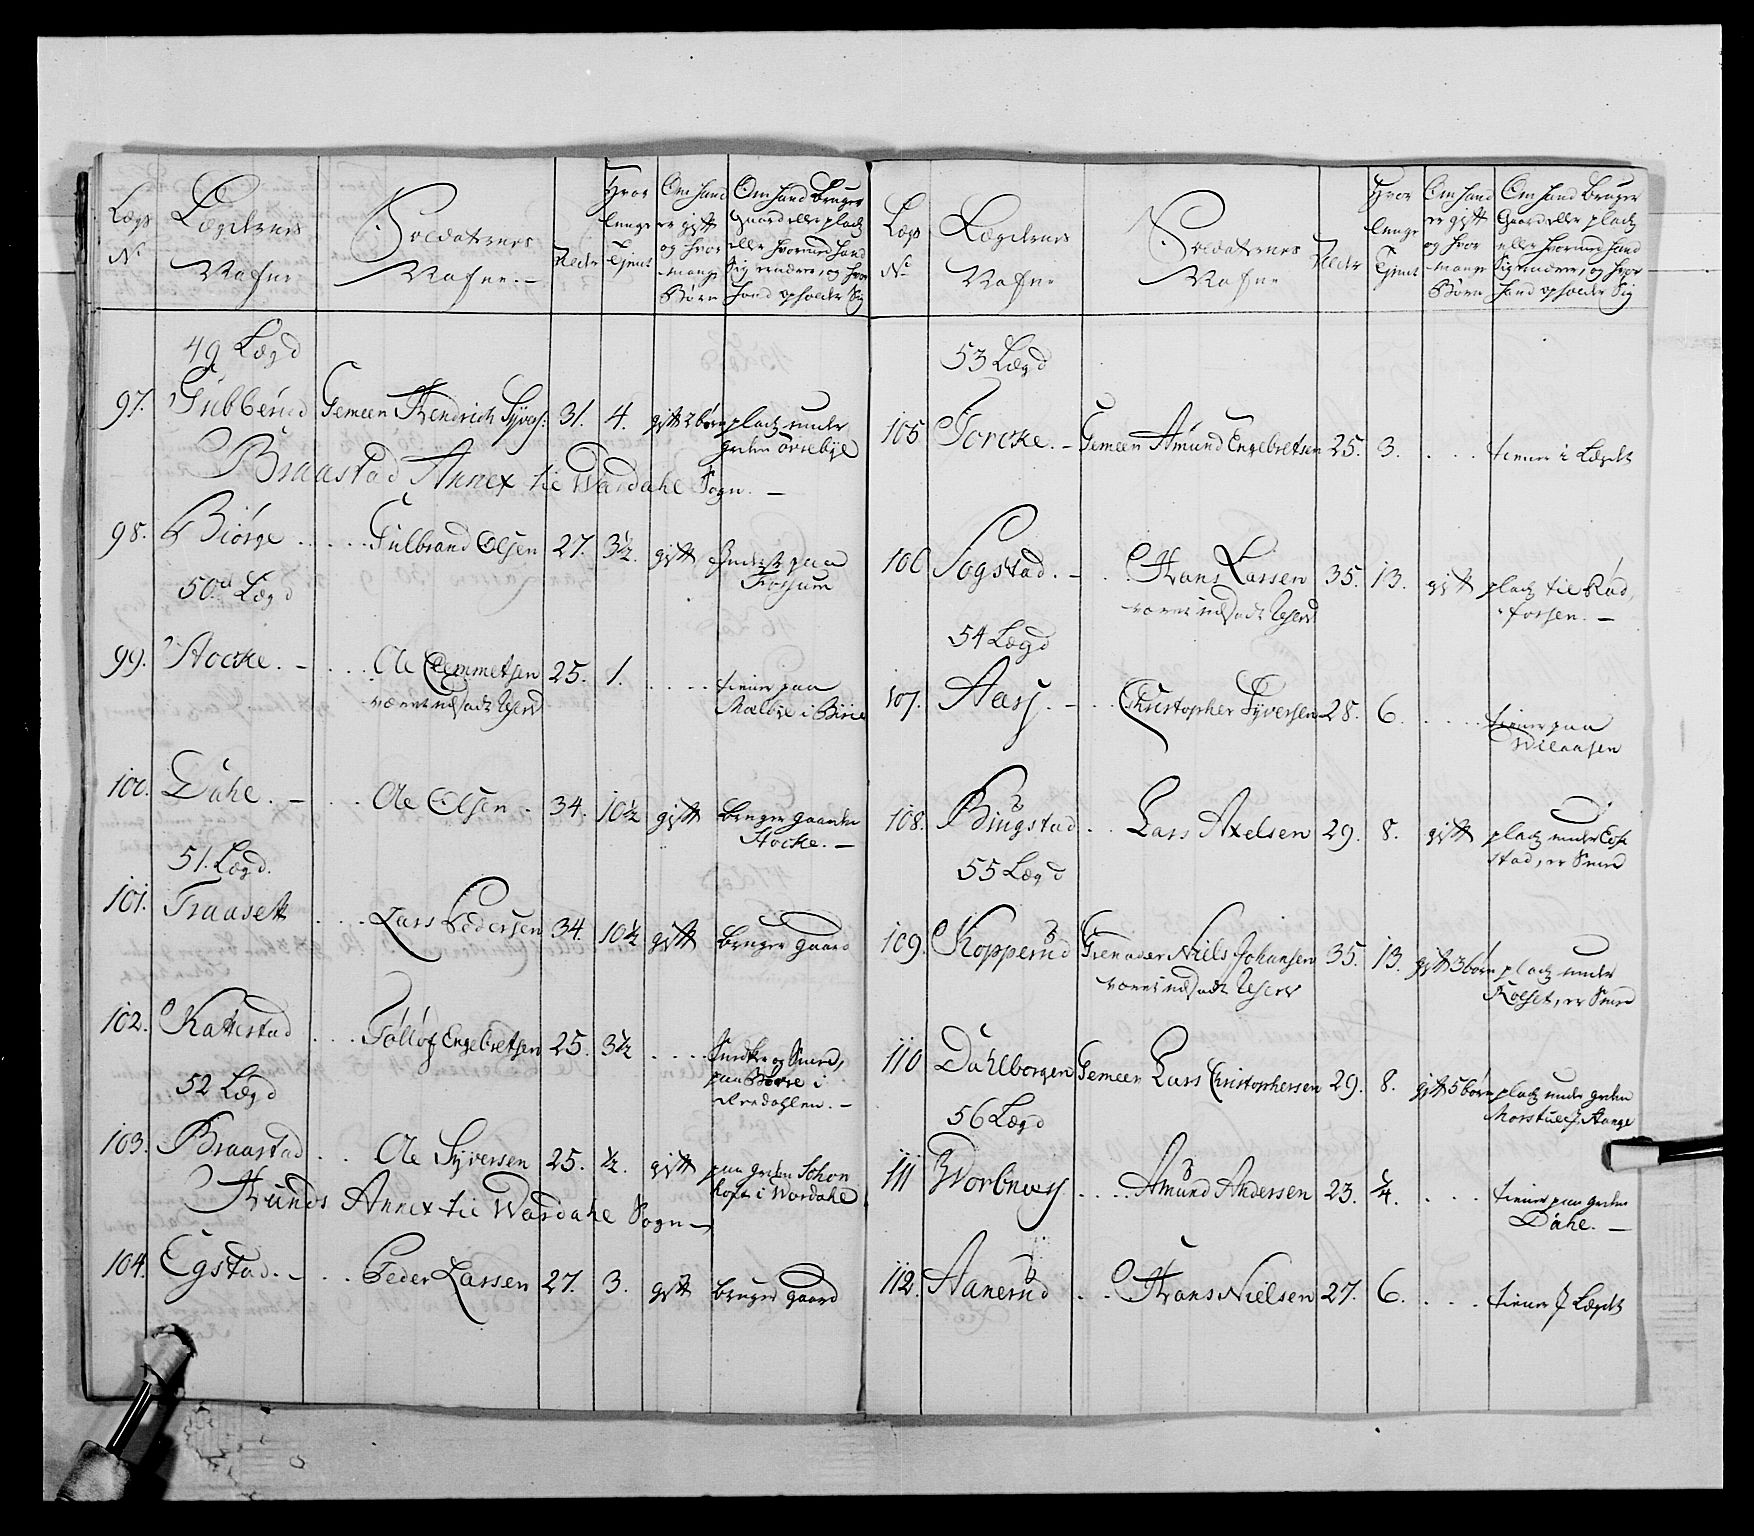 Lægs No | Lægdernes Nafne | Soldaternes Nafne. | Alder | Hvor lenge Tjent | Om hand er gift og hvor mange Børn | Om hand Bruger Gaard eller plads eller hvormed hand Sig ernærer, og hvor hand opholder Sig
49 Lægd
97. Gubberud Gemeen Hendrich Syvers: 31. 4. gift 2 børn plads under
Braastad Annex til Wardahl Sogn. —
98. Biørge Gulbrand Olsen 27. 3½. gift Inderst paa
Fossum
50de Lægd
99. Stocke. — Ole Clemmetsen 25. 1. tiener paa
været udsadt Reserv
100. Dahl. — Ole Olsen. 34. 10½ gift bruger gaarden
Stocke. —
51. Lægd.
101. Fraaset Lars Pedersen 34. 10½ gift bruger gaard
102. Kattestad Tølløf Engebretsen 25. 3½
52 Lægd
103. Braastad Ole Syversen 25. ½. gift
Hunds Annex til Wardahl Sogn —
104. Egstad. — Peder Larsen 27. 3. gift bruger gaard
Lægs No | Lægdernes Nafne | Soldaternes Nafne | Alder | Hvor lenge Tjent | Om hand er gift og hvor mange Børn | Om hand Bruger Gaard eller plads eller hvormed hand Sig ernærer, og hvor hand opholder Sig
53 Lægd
105 Torcke. — Gemeen Amund Engebretsen 25. 3. tiener i Lægdet
106 Sogstad. — Hans Larsen 35. 13. gift plads til
været udsadt Reserv
54 Lægd
107. Aas. — Christopher Syversen 28. 6. tiener paa
108. Bingstad Lars Axelsen 29. 8. gift plads under
stad, er Smed
55 Lægd
109. Kopperud Grenader Niels Johansen 35. 13. gift 3 børn plads under
været udsadt Reserv er Smed
110 Dahlborgen Gemeen Lars Christophersen 29. 8. gift 5 børn plads under
56 Lægd
111 Amund Andersen 23. ¼. tiener paa
Dahl. —
112. Aanerud Hans Nielsen 27. 6. tiener i Lægdet